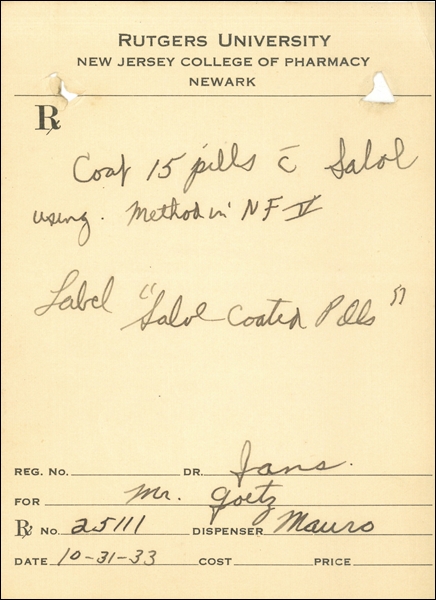 RUTGERS UNIVERSITY
NEW JERSEY COLLEGE OF PHARMACY
NEWARK
℞
Coat 15 pills c̄ Salol
using. Method in NF V
Label "Salol Coated Pills"
REG. NO. DR. Jans.
FOR Mr. Goetz
℞ NO. 25111 DISPENSER Mauro
DATE 10-31-33 COST PRICE